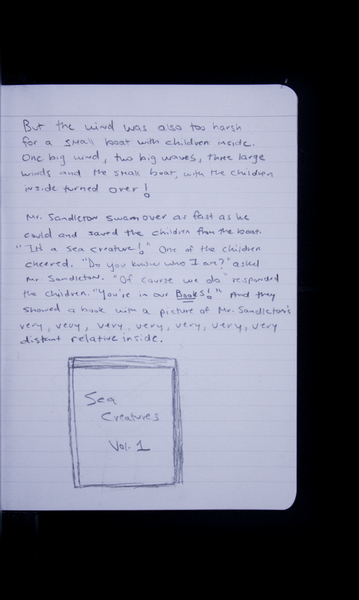 But the wind was also too harsh
for a small boat with children inside.
One big wind, two big waves, three large
winds and the small boat, with the children
inside turned over!
Mr. Sandleton swam over as fast as he
could and saved the children from the boat.
"It's a sea creature!" One of the children
cheered. "Do you know who I am?" asked
Mr Sandleton. "Of course we do" responded
the children. "You're in our Books!" And they
showed a book with a picture of Mr. Sandleton's
very, very, very, very, very, very, very
distant relative inside.
Sea
Creatures
Vol. 1